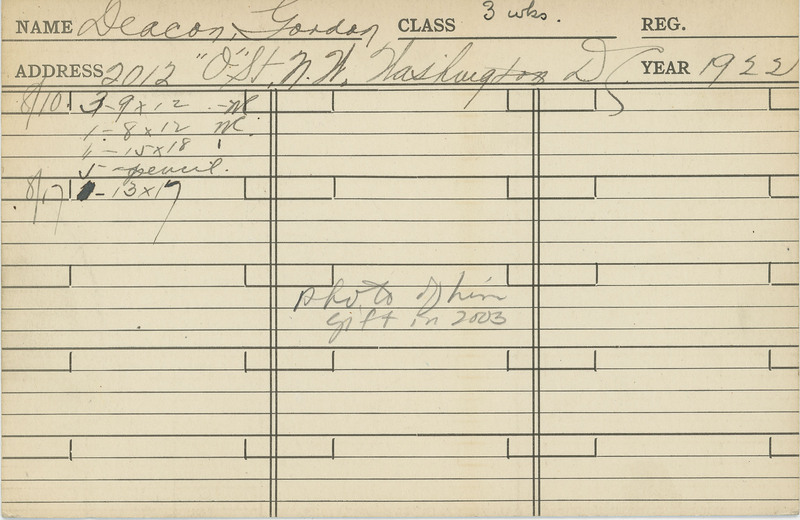 NAME Deacon, Gordon CLASS 3 wks. REG.
ADDRESS 2012 "O" St, N.W. Washington D.C. YEAR 1922
8/10 3-9x12 -
1-8x12
1-15x18
5-pencil.
8/17 1-13x17
photo of him
gift in 2003